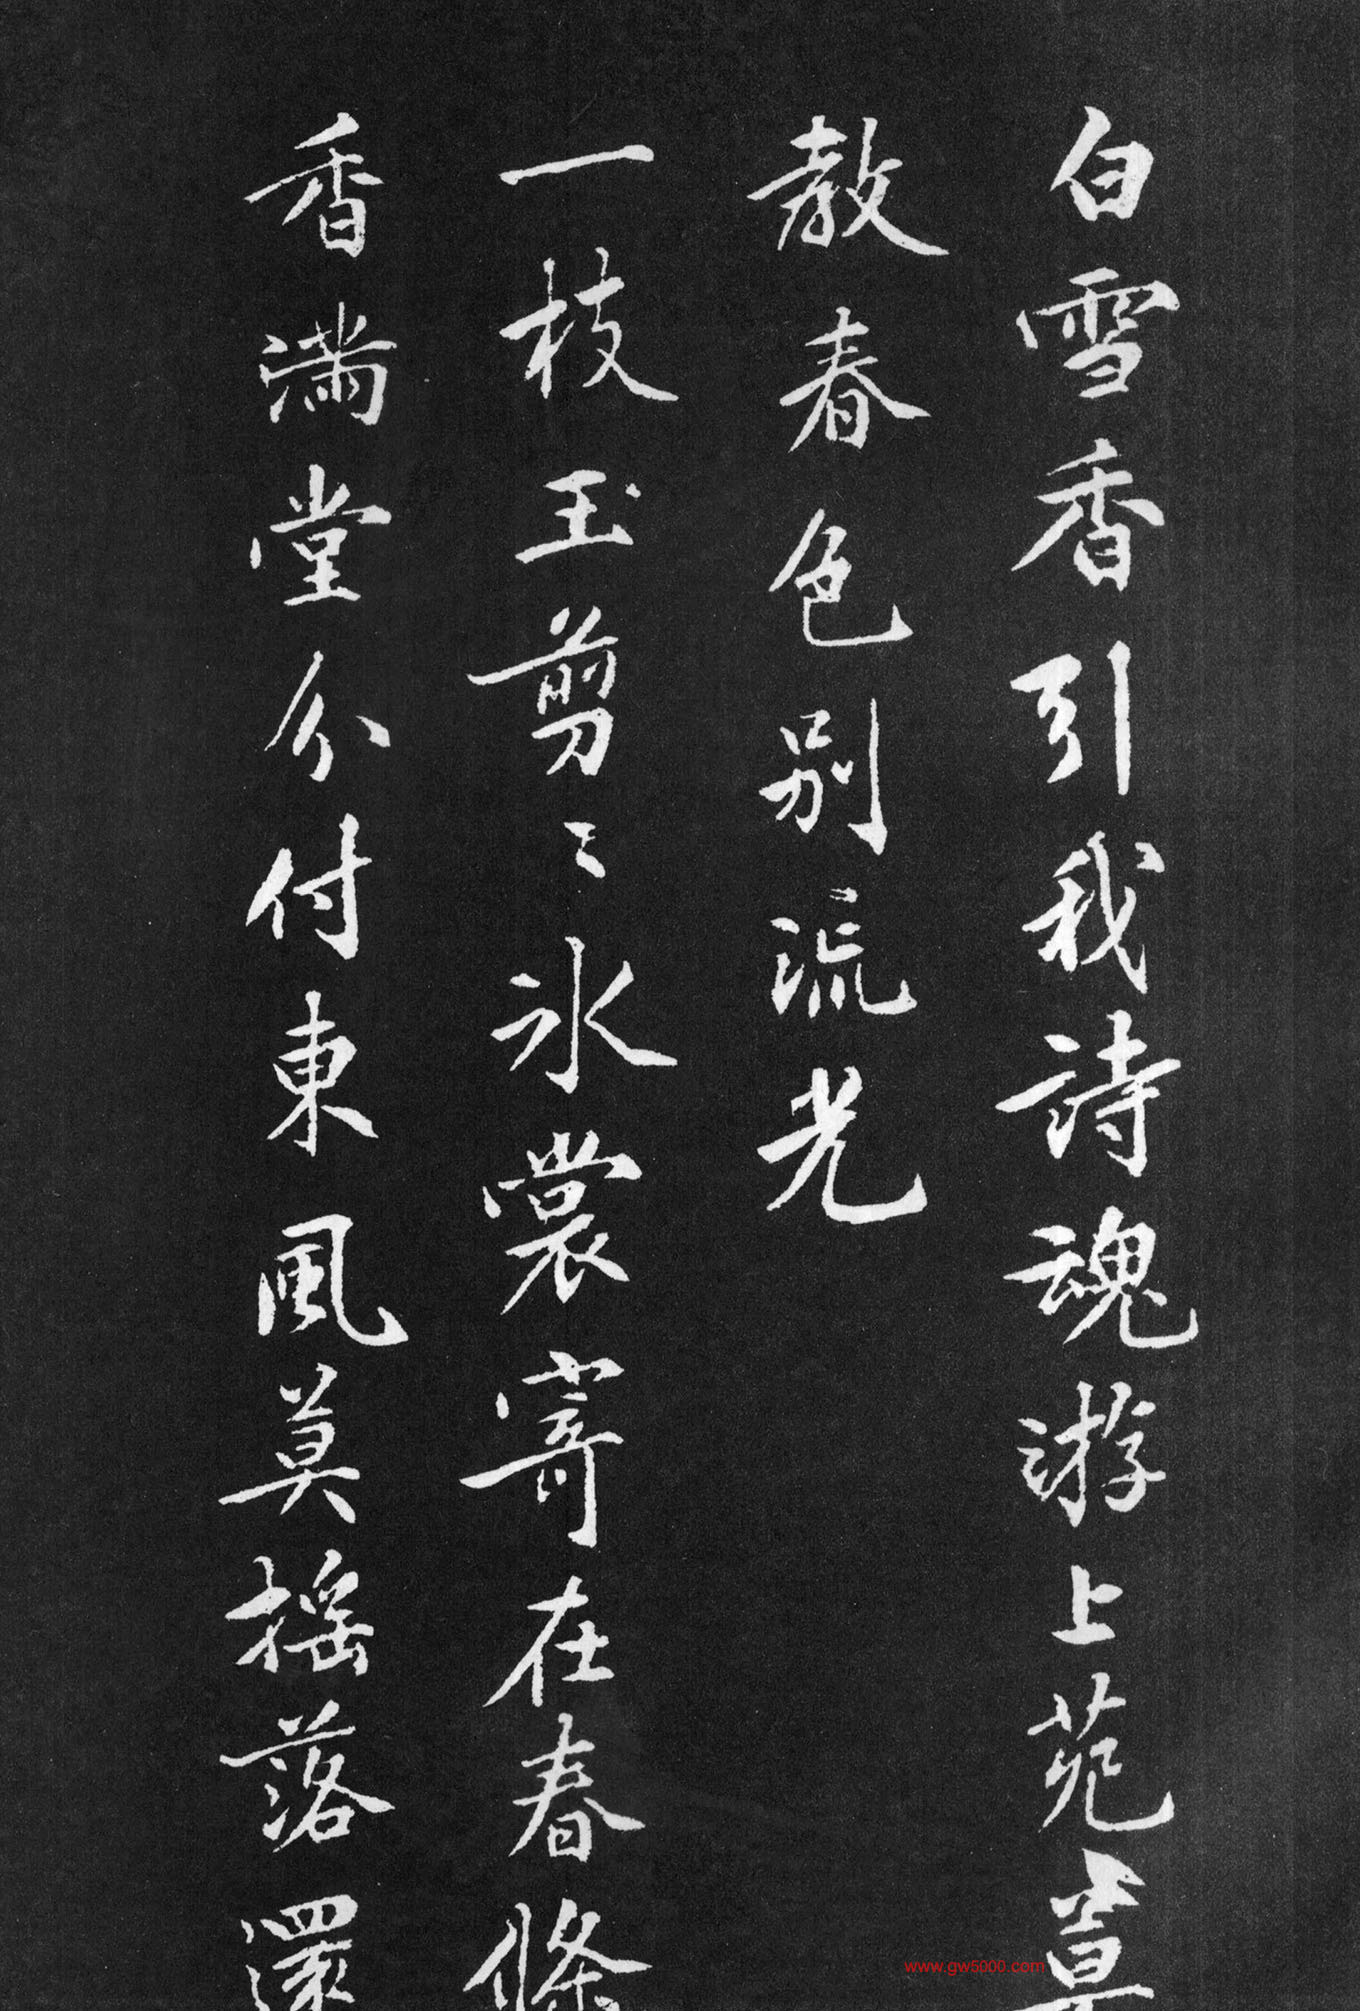 白雪香引我詩魂游上苑
教春色别流光
一枝玉剪〻冰裳寄在春條
香滿堂分付東風莫摇落還
www.gw5000.com